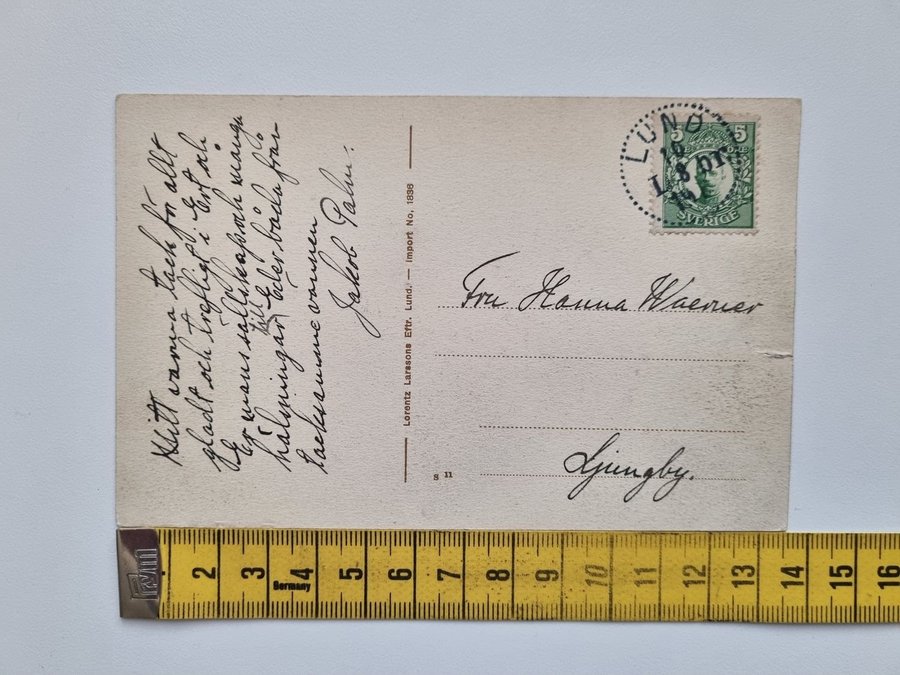 Mitt varma tack för allt
gladt och trefligt i Ert och
Er mans sällskap och många
hälsningar till Eder båda från
tacksamme vännen
Jakob Palm.
Lorentz Larssons Eftr. Lund. — Import No, 1836
S 11
LUND
16
L. 8 pr.
5 5
ÖRE
SVERIGE
Fru Hanna Waerner
Ljungby.
2 3 4 5 6 7 8 9 10 11 12 13 14 15 16
Germany